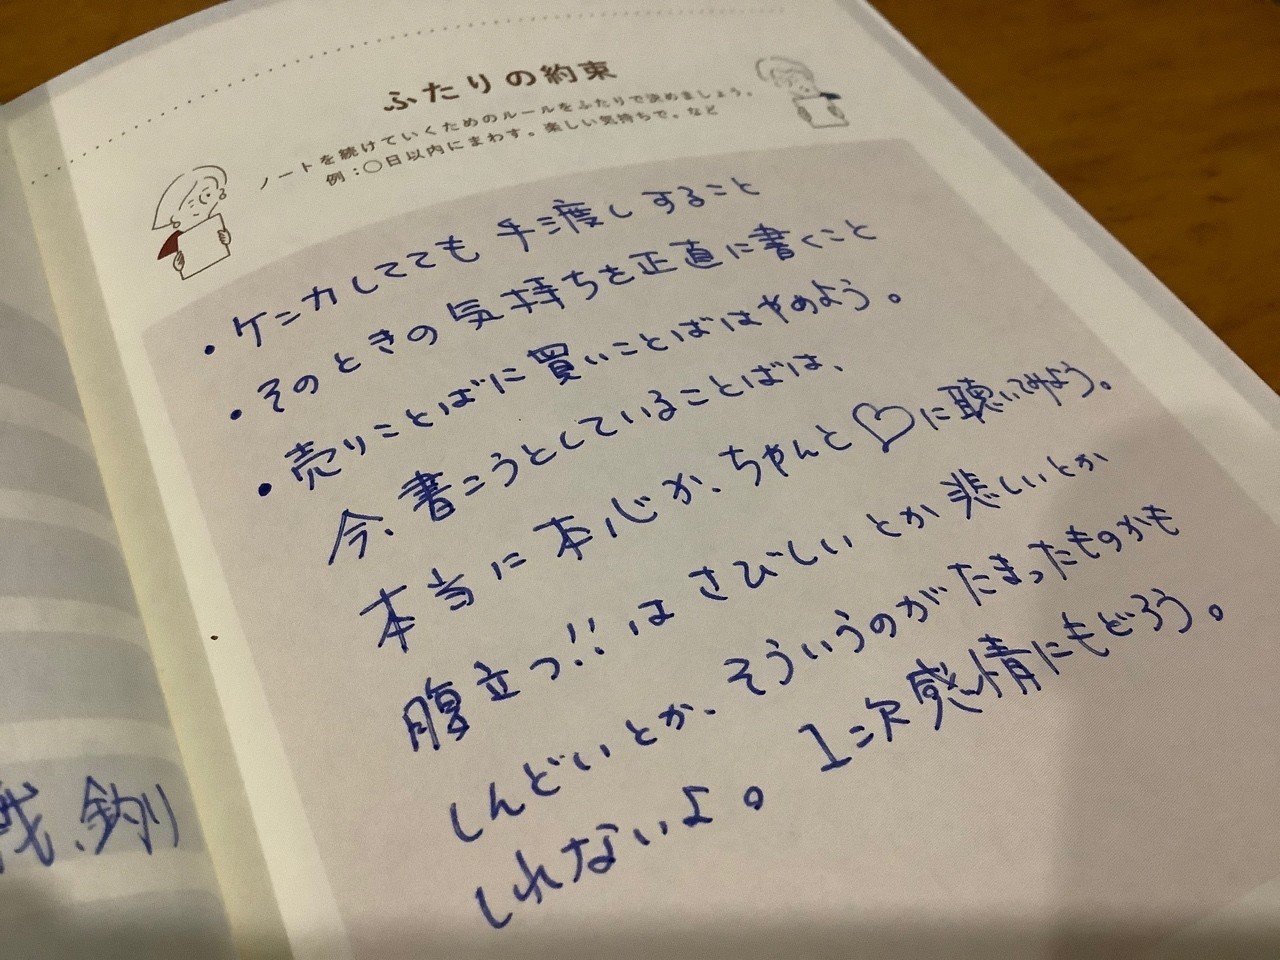 ふたりの約束
ノートを続けていくためのルールをふたりで決めましょう。
例:○日以内にまわす。楽しい気持ちで。など
・ケンカしてても手渡しすること
・そのときの気持ちを正直に書くこと
・売りことばに買いことばはやめよう。
今、書こうとしていることばは、
本当に本心か、ちゃんと♡に聴いてみよう。
腹立つ!!はさびしいとか悲しいとか
しんどいとか、そういうのがたまったものかも
しれないよ。1次感情にもどろう。
、釣り